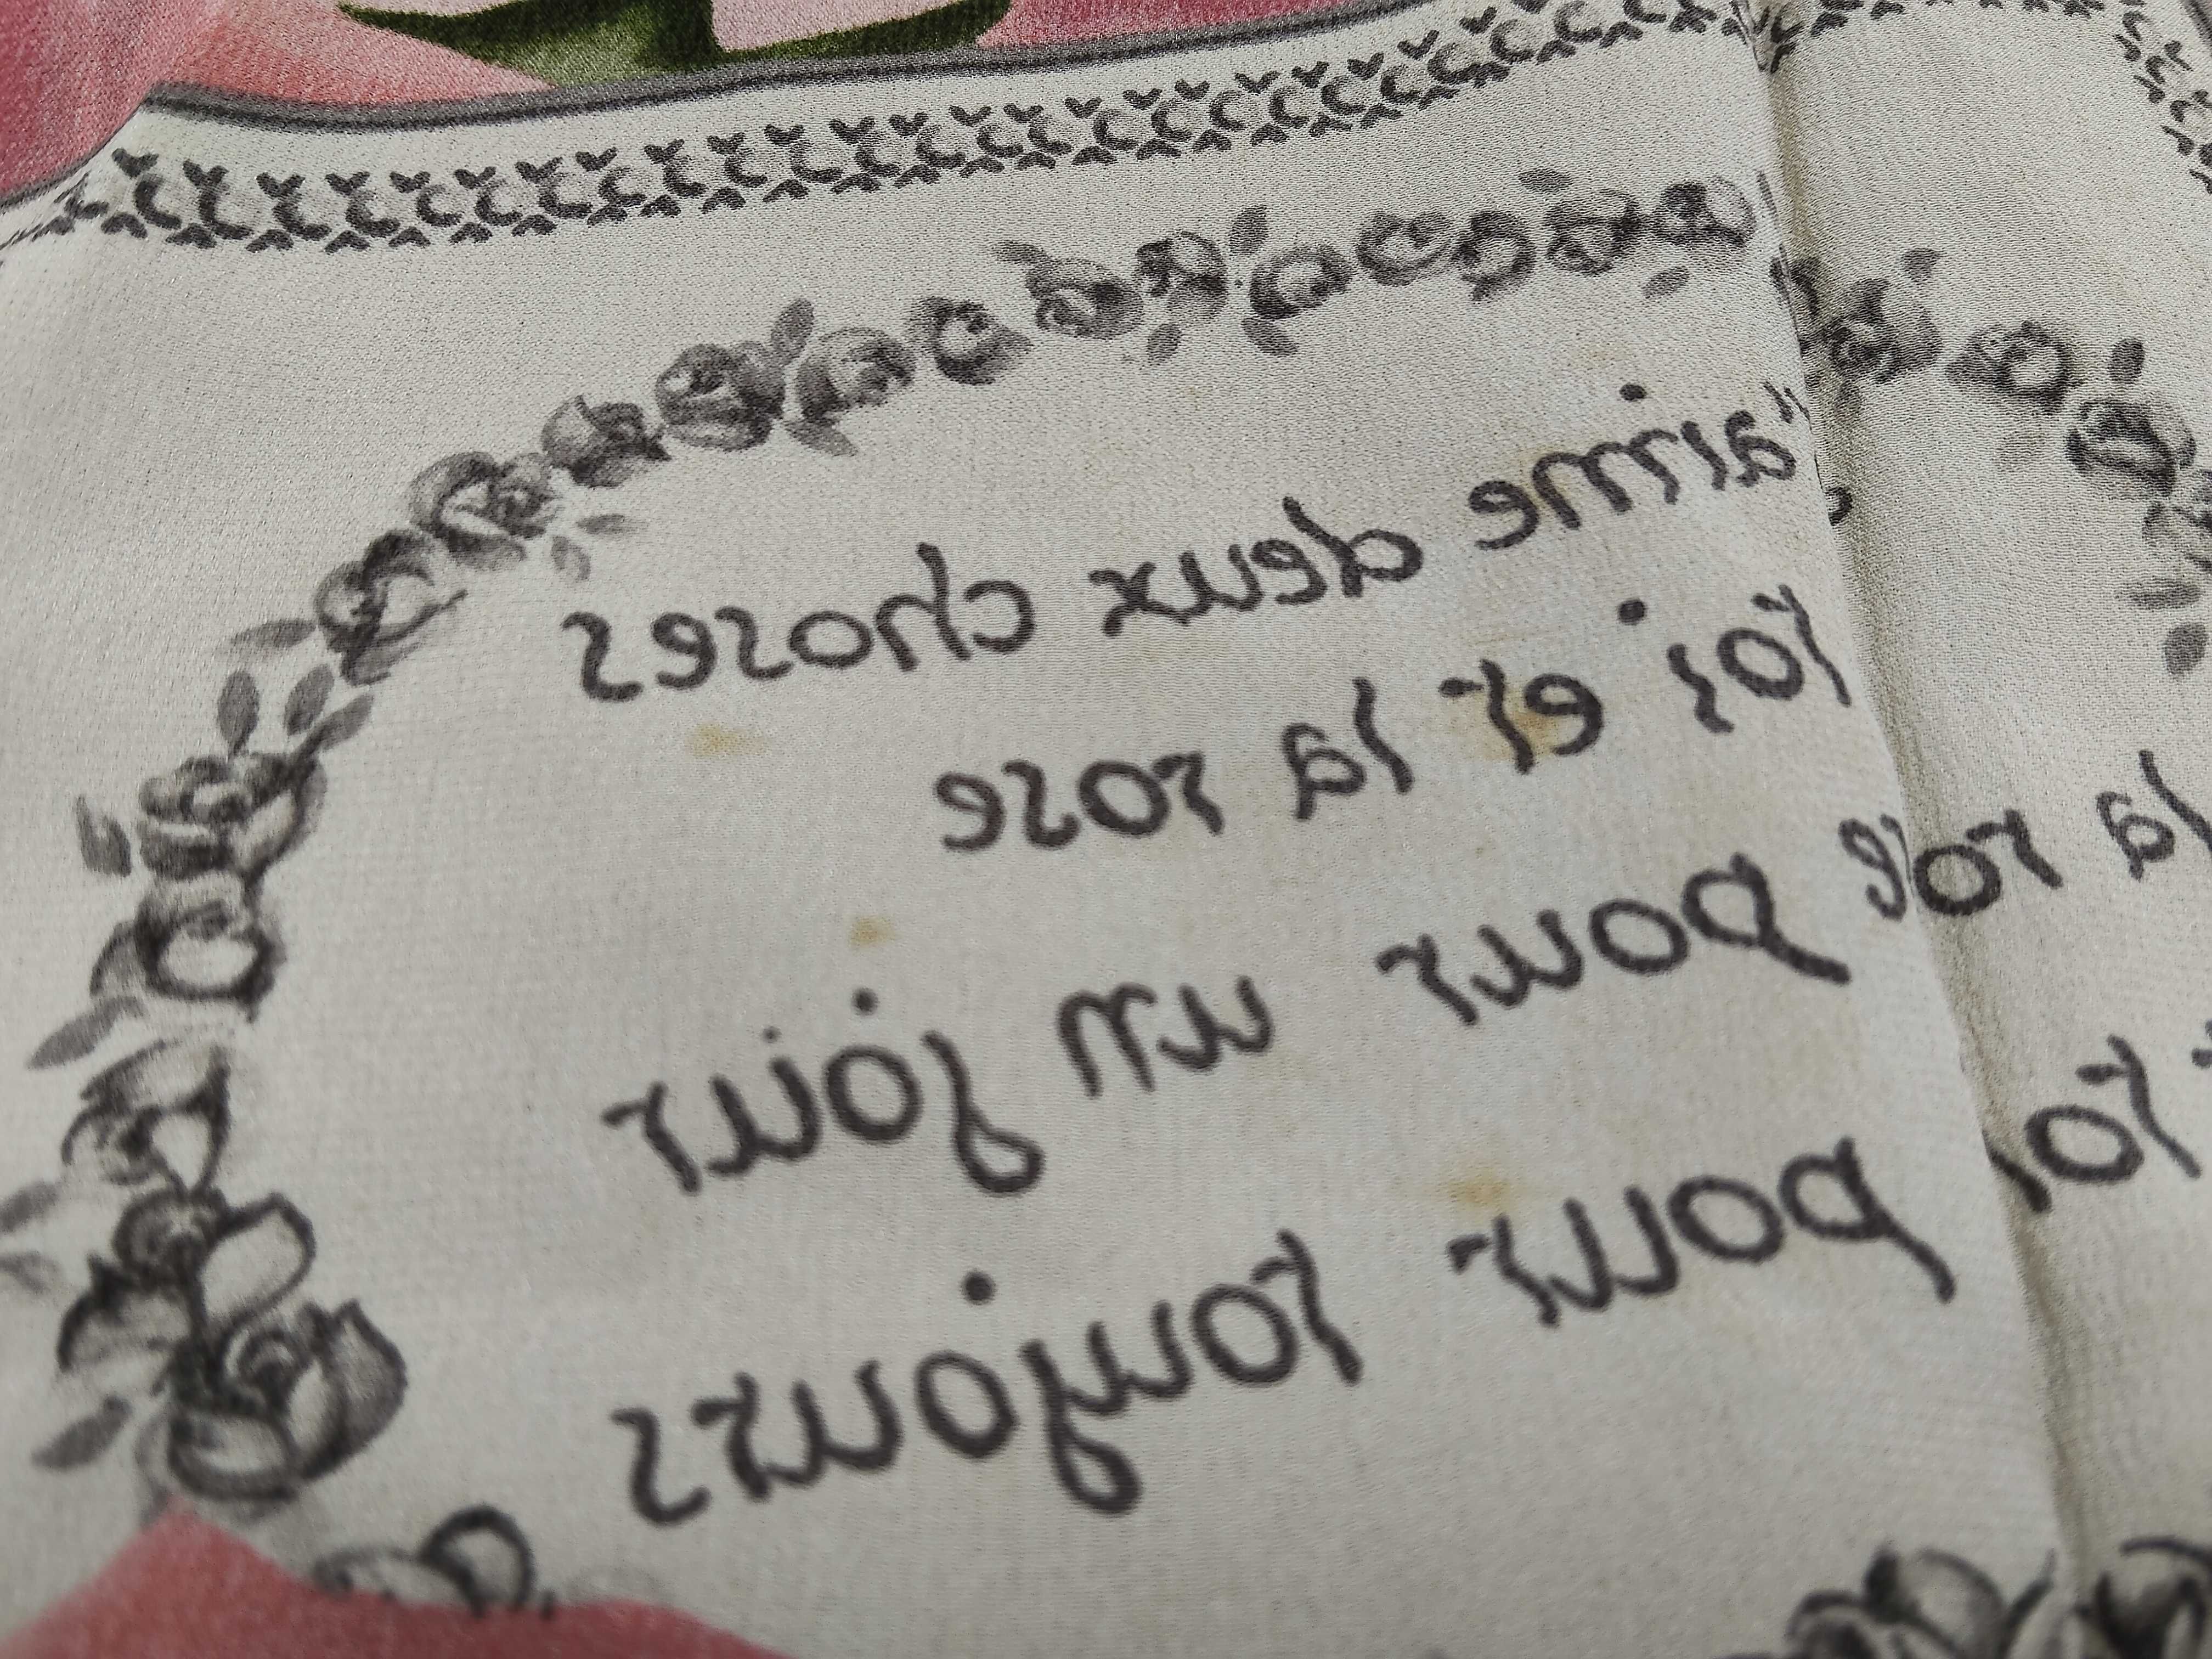 'aime deux choses
toi et la rose
pour un jour
pour toujours
la rose
toi